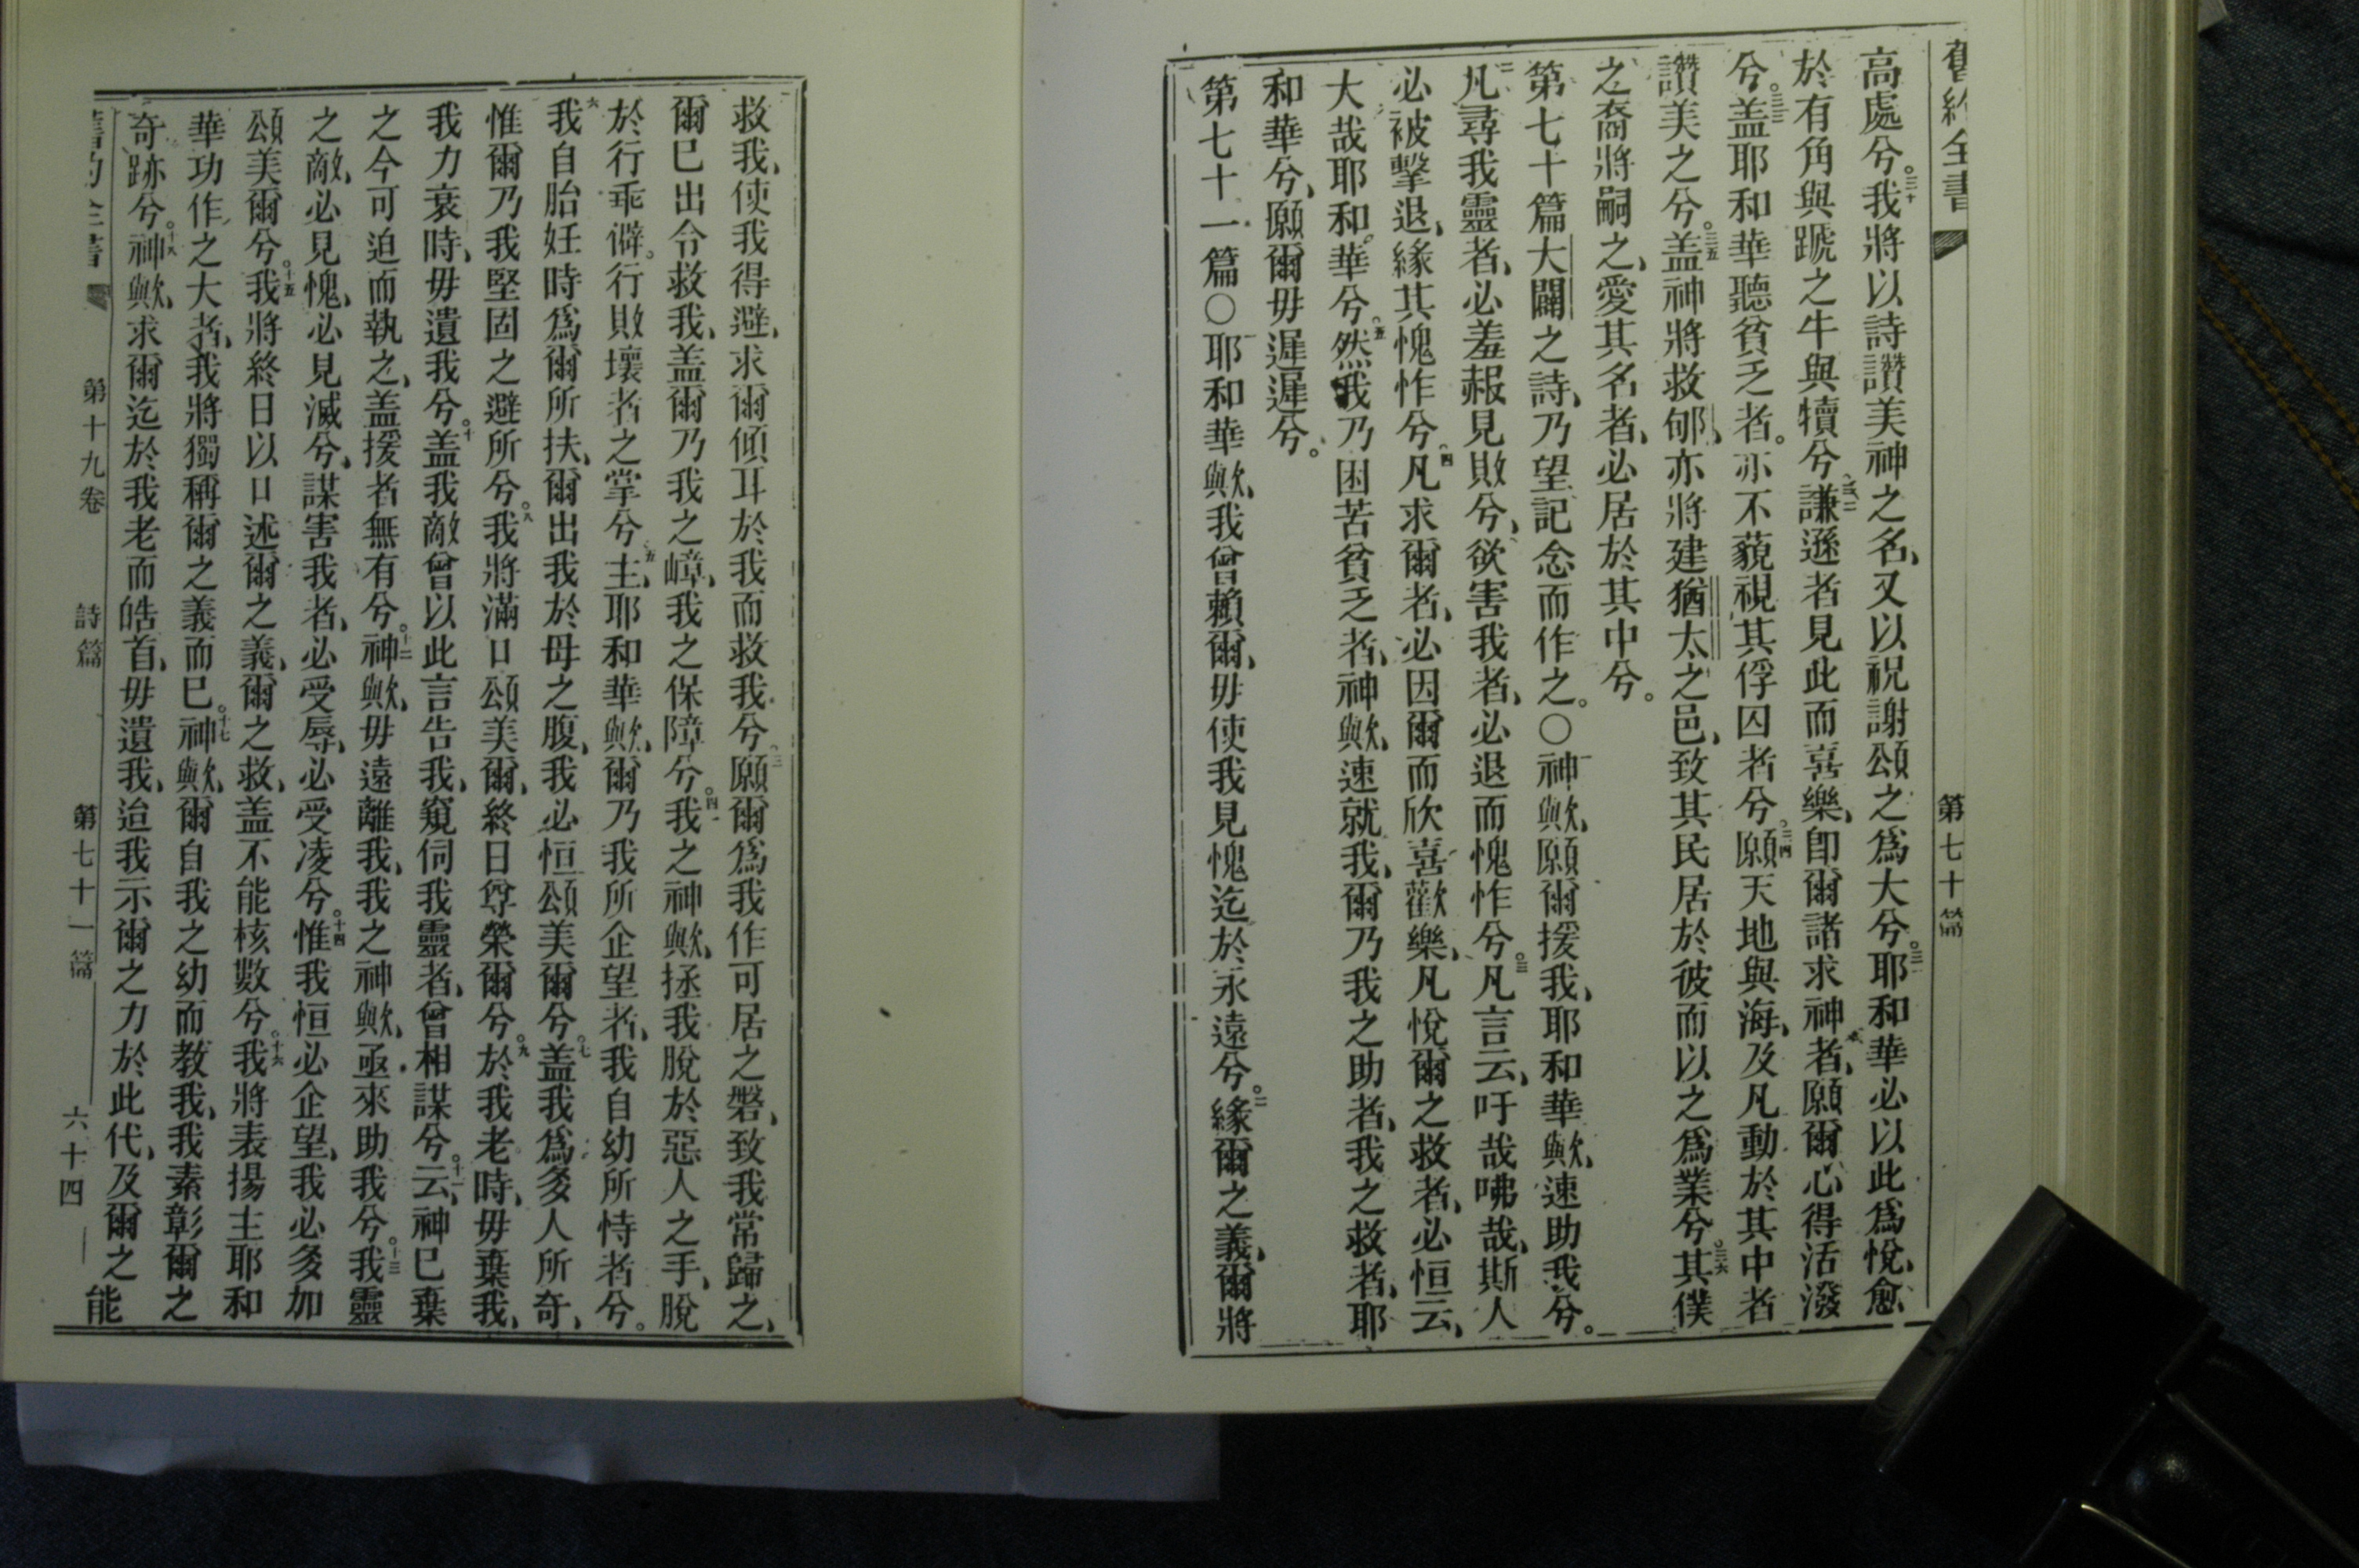 舊約全書 第七十篇
高處兮。三十我將以詩讚美神之名、又以祝謝頌之爲大兮。三一耶和華必以此爲悅、愈
於有角與蹏之牛與犢兮。三二謙遜者見此而喜樂、卽爾諸求神者、願爾心得活潑
兮。三三盖耶和華聽貧乏者。亦不藐視其俘囚者兮。三四願天地與海、及凡動於其中者
讚美之兮。三五盖神將救郇、亦將建猶太之邑、致其民居於彼而以之爲業兮。三六其僕
之裔將嗣之、愛其名者、必居於其中兮。
第七十篇大闢之詩、乃望記念而作之。〇一神歟、願爾援我、耶和華歟、速助我兮。
二凡尋我靈者、必羞赧見敗兮、欲害我者、必退而愧怍兮。三凡言云、吁哉咈哉、斯人
必被擊退、緣其愧怍兮。四凡求爾者、必因爾而欣喜歡樂、凡悅爾之救者、必恒云、
大哉耶和華兮。五然我乃困苦貧乏者、神歟、速就我、爾乃我之助者、我之救者、耶
和華兮、願爾毋遲遲兮。
第七十一篇〇一耶和華歟、我曾賴爾、毋使我見愧迄於永遠兮。二緣爾之義、爾將
救我、使我得避、求爾傾耳於我而救我兮。三願爾爲我作可居之磐、致我常歸之、
爾已出令救我、盖爾乃我之嶂、我之保障兮。四我之神歟、拯我脫於惡人之手、脫
於行乖僻。行敗壞者之掌兮。五主、耶和華歟、爾乃我所企望者、我自幼所恃者兮。
六我自胎妊時爲爾所扶、爾出我於母之腹、我必恒頌美爾兮。七盖我爲多人所奇、
惟爾乃我堅固之避所兮。八我將滿口頌美爾、終日尊榮爾兮。九於我老時、毋棄我、
我力衰時、毋遺我兮。十盖我敵曾以此言告我、窺伺我靈者、曾相謀兮。十一云、神已棄
之今可迫而執之、盖援者無有兮。十二神歟、毋遠離我、我之神歟、亟來助我兮。十三我靈
之敵、必見愧、必見滅兮、謀害我者、必受辱、必受凌兮。十四惟我恒必企望、我必多加
頌美爾兮。十五我將終日以口述爾之義、爾之救、盖不能核數兮。十六我將表揚主耶和
華功作之大者、我將獨稱爾之義而已。十七神歟、爾自我之幼而教我、我素彰爾之
奇跡兮。十八神歟、求爾迄於我老而皓首、毋遺我、迨我示爾之力於此代、及爾之能
舊約全書 第十九卷 詩篇 第七十一篇 六十四